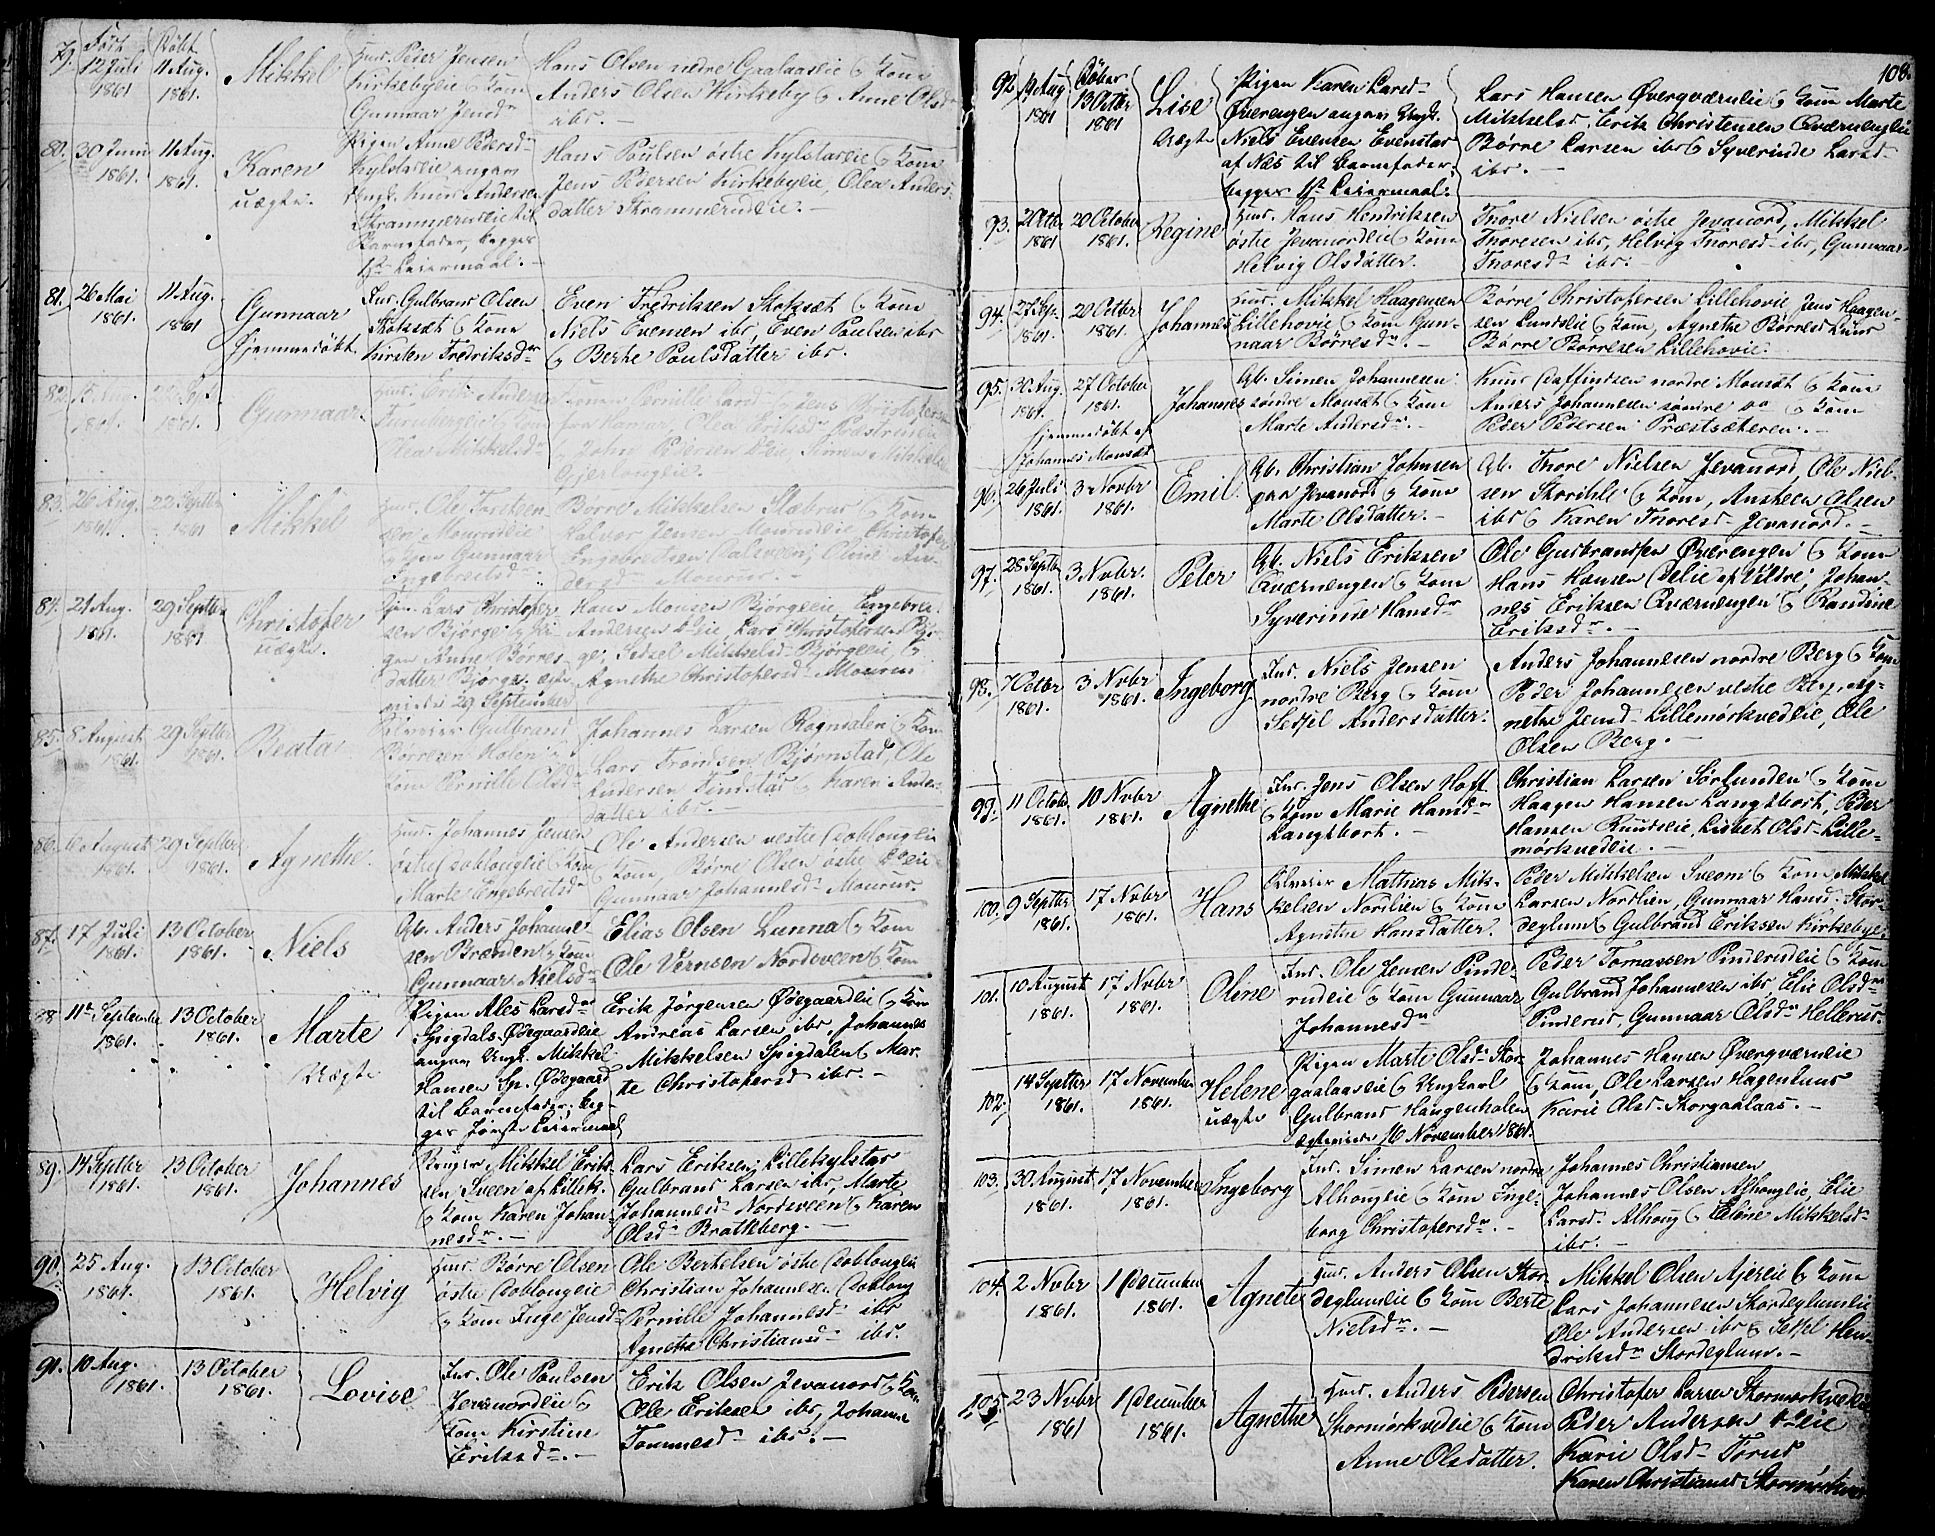 Født Døbt
79. 12 Juli 1861 11 Aug. 1861. Mikkel
Huus. Peder Jensen
Kirkebyeie & Kone
Gunnaar Jensdr
Hans Olsen nedre Gaalaaseie & Kone
Anders Olsen Kirkeby & Anne Olsdr
ibr. —
80. 30 Juni 1861. 11 Aug. 1861. Karen
uægte.
Pigen Anne Pedersdr
Kylstadeie angav
Ungk. Knud Andersen
til
Barnefader, begges
1ste Leiermaal. —
Hans Paulsen østre Kylstadeie & Kone
Jens Pedersen Kirkebyeie, Olea Anders-
datter
81. 26 Mai 1861. 11 Aug. 1861 Gunnaar
Hjemmedøbt
Ins. Gulbrand Olsen
Skolset & Kone
Kirsten Fredriksdr
Even Fredriksen Skolset & Kone
Niels Evensen ibr, Even Paulsen ibr
& Berthe Paulsdatter ibr.
82. 1861. 1861. Gunnaar
Huus. Erik Andersen
& Kone
Olea Mikkelsdr
fra Hamar, Olea Eriksdr
John Pedersen Eie, Simen Mikkelsen
83. 26 Aug. 1861. 22 Septbr 1861 Mikkel
Huus. Ole Torsteen-
sen Mourudeie
& Kone Gunnaar
Engebretsdr
Børre Mikkelsen & Kone
Halvor Jensen Mourudeie, Christofer
Engebretsen Oline An-
dersd. Mourud. —
84. 21 Aug. 1861. 29 Septbr 1861 Christofer
uægte.
Lars Christofer-
sen Bjørge & Pi-
gen Anne Børres-
datter Bjørge. Egte-
viede 29 September
Hans Monsen Bjørgeeie, Engebret
Andersen Eie, Lars Christofersen Bjør-
ge, Sidsel Mikkelsd. Bjørgeeie, &
Agnethe Christofersd. Mourud
85. 8 August 1861. 29 Septbr 1861. Beata
Gulbrand
Børresen Holen
Kone Pernille Olsdr
Johannes Larsen & Kone
Lars Trondsen Bjørnstad, Ole
Andersen Findstad & Karen Anders-
datter ibr. —
86. 6 August 1861. 29 Septbr 1861. Agnethe.
Huus. Johannes Jensen
østre Doblougeie & Kone
Marte Engebretsdr
Ole Andersen vestre Doblougeie
& Kone, Børre Olsen østre Eie
Gunnaar Johannesd. Mourud.
87. 17 Juli 1861. 13 October 1861. Niels
Gb. Anders Johannes-
sen Brænden & Kone
Gunnaar Nielsdr
Elias Olsen Lunna & Kone
Ole Vernsen Nordsveen & Kone
88 11te September 1861. 13 October 1861. Marte
Uægte
Pigen Ales Larsdr
Spigdals. Ødegaardeie
angav Ungk. Mikkel
Hansen Sp. Ødegaard
til Barnefader; beg-
ges første Leiermaal
Erik Jørgensen Ødegaardeie & Kone
Andreas Larsen ibr, Johannes
Mikkelsen Spigdalen & Mar-
te Christofersd ibr. —
89. 14 Septbr 1861. 13 October 1861. Johannes
Mikkel Erik-
sen Sveen af Lillek.
& Kone Karen Johan-
nesdr. —
Lars Eriksen Lillekylstad
Gulbrand Larsen ibr, Marte
Johannesd. Nordsveen & Karen
Olsd. Bratberg. —
90. 25 Aug. 1861. 13 October 1861. Helvig
Huus. Børre Olsen
østre Doblougeie
& Kone Inge Jensd.
Ole Berthelsen østre Doblougeie
Christian Johannesen Doblong
Pernille Johannesd. ibr
Agnethe Christiansd. ibr.
91. 10 Aug. 1861. 13 October 1861. Lovise
Ins. Ole Paulsen
Jevanordeie &
Kone Kirstine
Eriksdr. —
Erik Olsen Jevanord & Kone
Ole Eriksen ibr, Johanne
Tommesd. ibr. —
108.
Døbte
92 19 Aug 1861 13 Octbr 1861 Lise
Uægte
Pigen Karen Larsd.
Øverengen angav Ungk.
Niels Evensen Evenstad
af Næs til Barnefader,
begges 1ste Leiermaal.
Lars Hansen Øvergværneie & Kone Marte
Mikkelsd, Erik Christensen Qværnengeie
Børre Larsen ibr & Syverinde Larsd.
ibr. —
93. 2 Octbr 1861 20 October 1861. Regine
Huus. Hans Hendriksen
østre Jevanordeie & Kone
Helvig Olsdatter.
Thore Nielsen østre Jevanord, Mikkel
Thoresen ibr, Helvig Thoresd. ibr, Gunnaar
Thoresdr ibr. —
94. 27 Sep. 1861. 20 Octbr 1861. Johannes
Huus. Mikkel Haagensen
Lillehovie & Kone Gun-
naar Børresdr. —
Børre Christofersen Lillehovie, Jens Haagen-
sen Lundseie & Kone, Agnethe Børresd Lund
Børre Børresen Lillehovie.
95. 30 Aug. 1861. 27 October 1861. Johannes
Hjemmedøbt af
Johannes Monsæt
Gb. Simen Johannesen
søndre Monsæt & Kone
Marte Andersdr. —
Knud Daffindsen nordre Monsæt & Kone
Anders Johannesen søndre do & Kone
Peder Pedersen Præstsæteren. —
96. 26 Juli 1861. 3 Novbr 1861. Emil.
Gb. Christian Johnsen
paa Jevanord & Kone
Marte Olsdatter. —
Gb. Thore Nielsen Jevanord, Ole Niel-
sen Skorihle & Kone, Ansteen Olsen
ibr & Karen Thoresd. Jevanord. —
97. 28 Septbr 1861. 3 Novbr. 1861. Peter
Gb. Niels Eriksen
Qværnengen & Kone
Syverine Hansdr
Ole Gulbrandsen Øverengen & Kone
Hans Hansen Delie af Vildre, Johan-
nes Eriksen Qværnengen & Randine
Eriksdr. —
98. 7 Octbr 1861. 3 Novbr 1861. Ingeborg
Ins. Niels Jensen
nordre Berg & Kone
Sidsel Andersdatter.
Anders Johannesen nordre Berg & Kone
Peder Johannesen vestre Berg, Ag-
nethe Jensd. Lillemørkvedeie, Ole
Olsen Berg. —
99. 11 Octob. 1861. 10 Novbr 1861. Agnethe
Ins. Jens Olsen Hoff
& Kone Marie Hansdr
Langtbort. —
Christian Larsen Sørlunden & Kone
Haagen Hansen Langtbort, Peder
Hansen Ruudseie, Lisbet Olsd. Lille-
mørkvedeie. —
100. 9 Septbr 1861. 17 Novbr 1861. Hans
Mathias Mik-
kelsen Nordlien & Kone
Agnethe Hansdatter.
Peder Mikkelsen Sveom & Kone, Mikkel
Larsen Nordlien, Gunnaar Hansd. Skor-
deglum & Gulbrand Eriksen Kirkebye.
101. 10 August 1861. 17 Novbr 1861. Oline
Ins. Ole Jensen Pinde-
rudeie & Kone Gunnaar
Johannesdr
Peder Tomassen Pinderudeie & Kone
Gulbrand Johannesen ibr, Elie Olsdr
Pinderud, Gunnaar Olsdr Hellerud.
102. 14 Septbr 1861. 17 November 1861. Helene
uægte
Pigen Marte Olsd. Skor-
gaalaaseie & Ungkarl
Gulbrand Haugenholen
Egteviede 16 November 1861.
Johannes Hansen Øvergværneie
& Kone, Ole Larsen Hagenlund
Karie Olsd. Skorgaalaas. —
103. 30 August 1861. 17 November 1861. Ingeborg
Ins. Simen Larsen nordre
Alhougeie & Kone Inge-
borg Christofersdr. —
Johannes Christiansen
Johannes Olsen Alhougeie, Elie
Larsd. Alhoug & Eline Mikkelsd.
ibr. —
104. 2 Novbr 1861. 1 December 1861. Agnete
Huus. Anders Olsen Skor-
deglumeie & Kone Berte
Nielsdr. —
Mikkel Olsen Ajereie & Kone
Lars Johannesen Skordeglumeie
Ole Andersen ibr & Sidsel Hen-
driksdr Skordeglum. —
105. 23 Novbr 1861 1 December 1861. Agnethe
Huus. Anders Pedersen
Skormørkvedeie & Kone
Anne Olsdatter.
Christofer Larsen Skormørkvedeie
Peder Andersen Eie
Karie Olsd. Torud
Karen Christiansd. Skormørkved